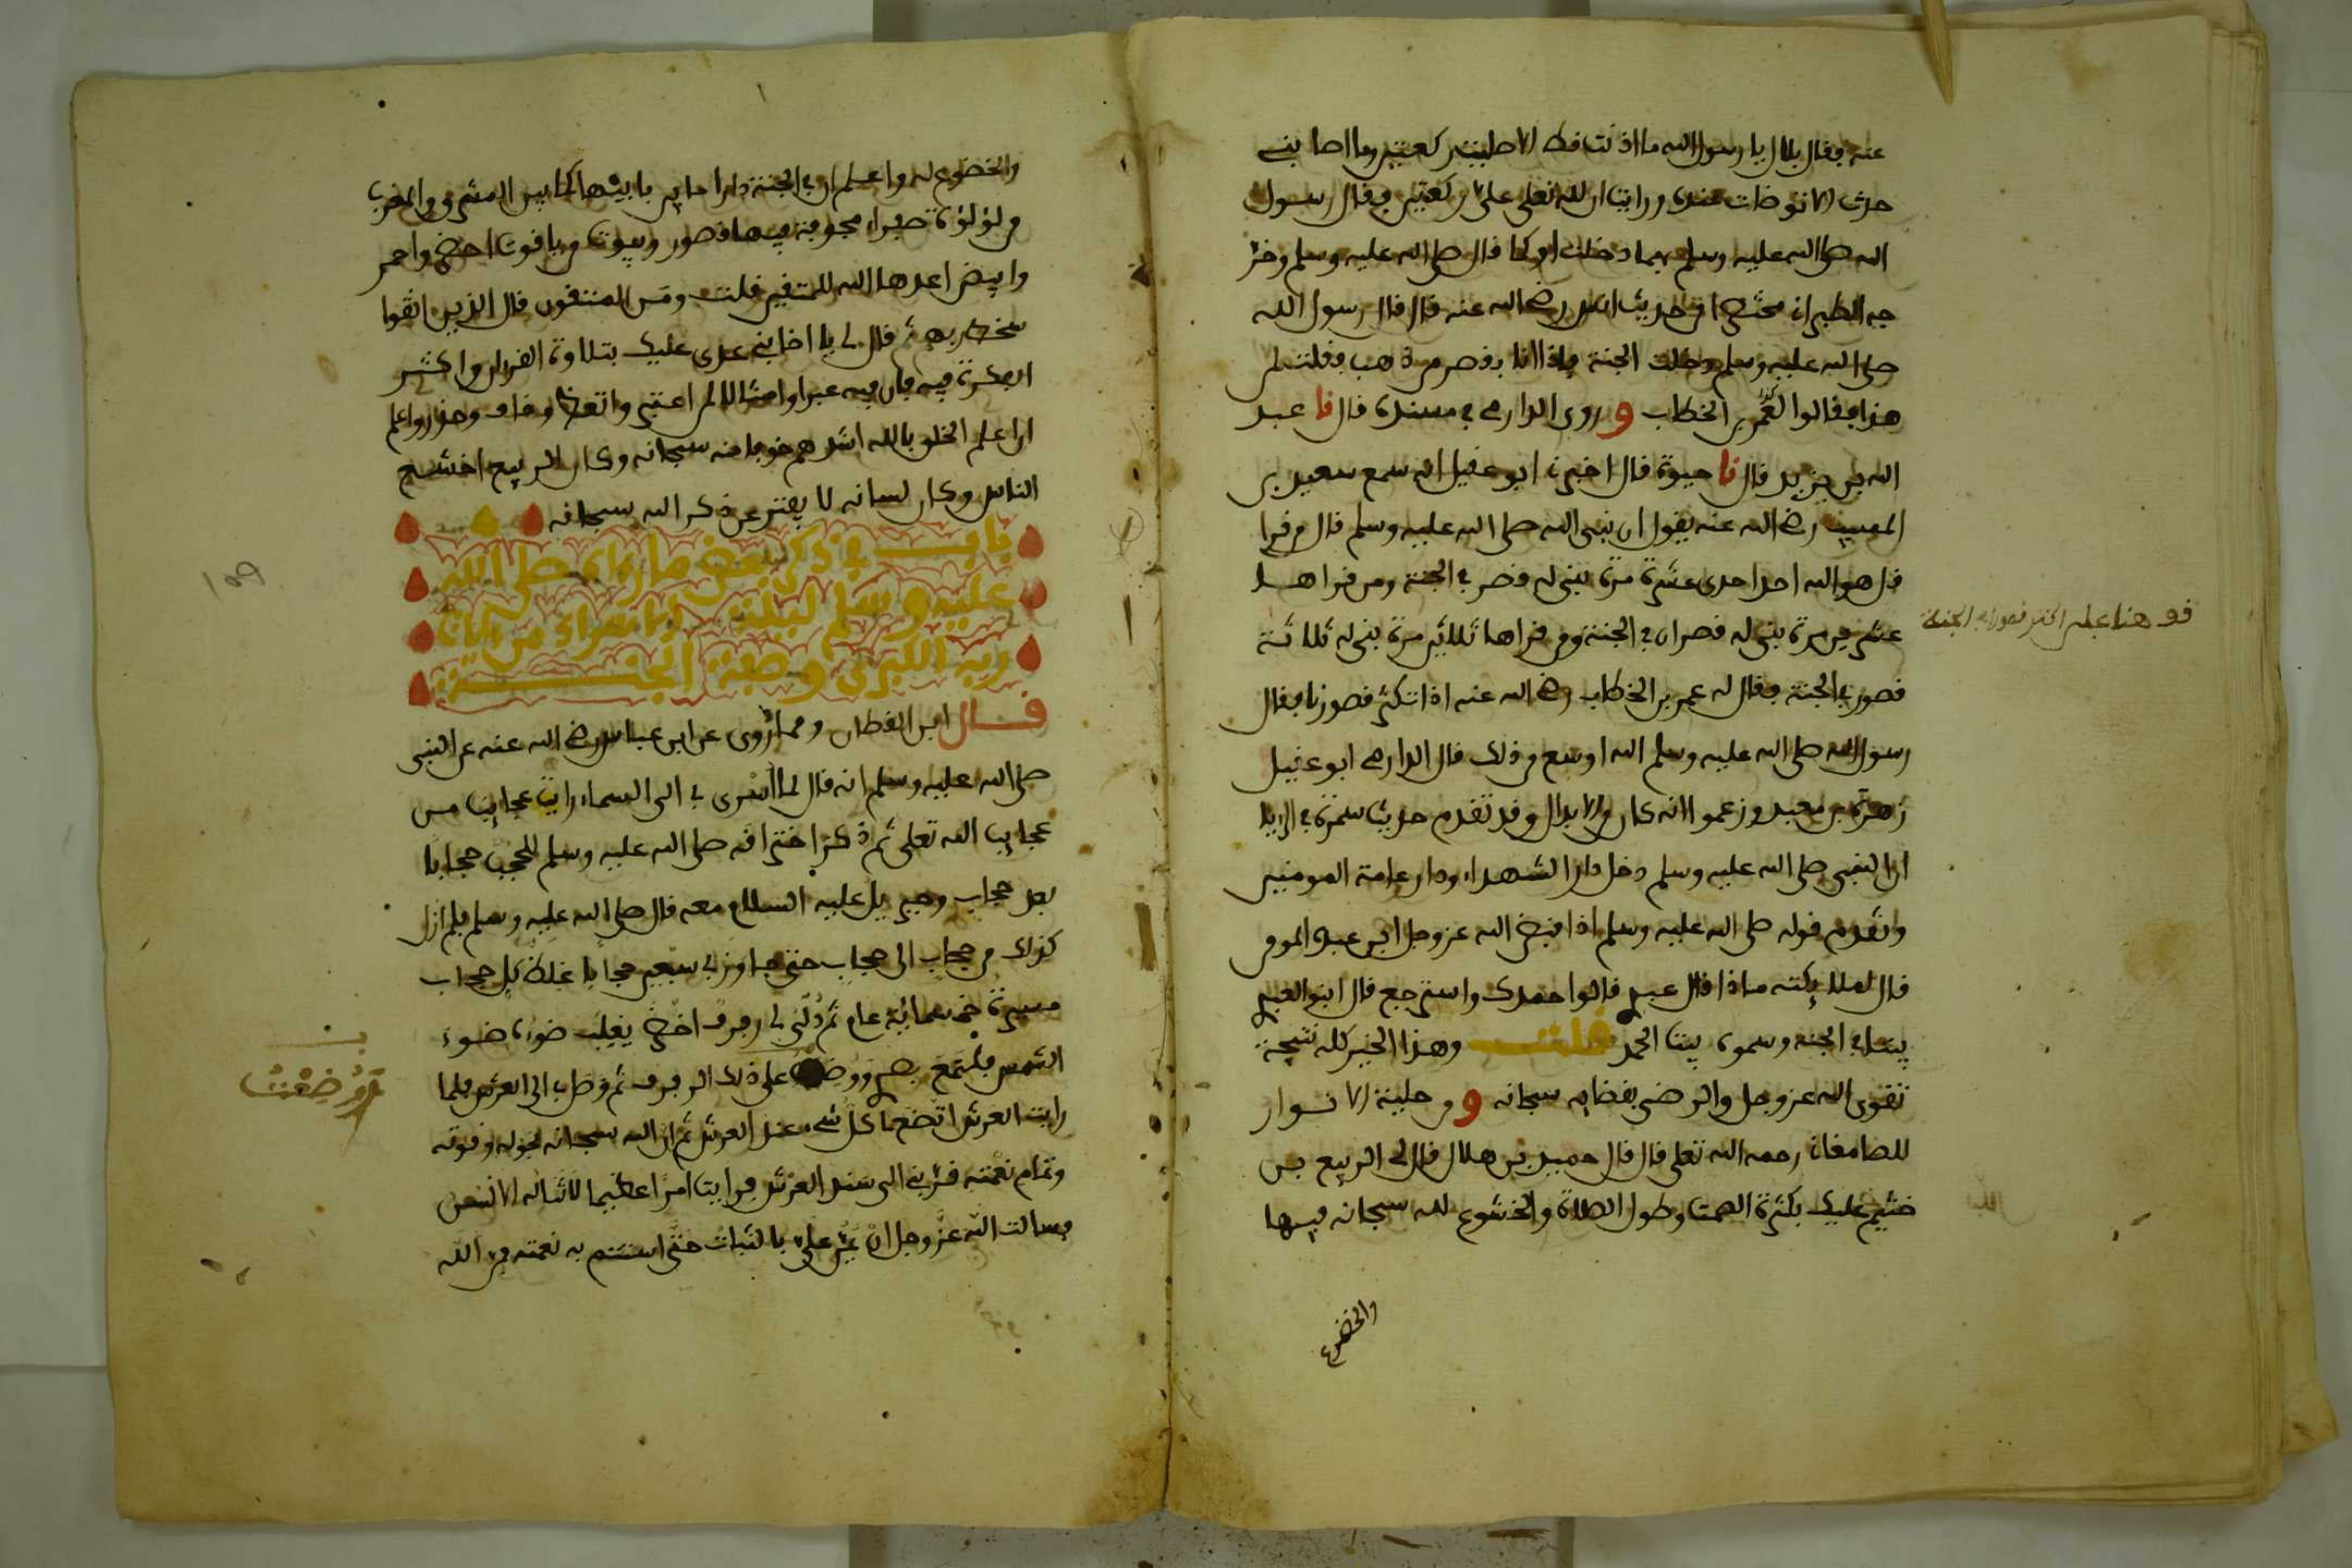 عنه فقال بلال يا رسول الله ما اذنت قط الا صليت ركعتين وما اصابني
حدث الا توضات عنده ورايت ان لله تعلى علي ركعتين فقال رسول
الله صلى الله عليه وسلم بهما دخلت او كما قال صلى الله عليه وسلم وخر
جه الطبراني مختصرا من حديث انس رضي الله عنه قال قال رسول الله
صلى الله عليه وسلم دخلت الجنة فاذا انا بقصر من ذهب فقلت لمن
هذا فقالوا لعمر بن الخطاب و روى الدارمي في مسنده قال نا عبد
الله بن يزيد قال نا حيوة قال اخبرني ابو عقيل انه سمع سعيد بن
المسيب رضي الله عنه يقول ان نبي الله صلى الله عليه وسلم قال من قرا
قل هو الله احد احدى عشرة مرة بني له قصر في الجنة ومن قراها
عشرين مرة بني له قصران في الجنة ومن قراها ثلاثين مرة بني له ثلاثة
قصور في الجنة فقال له عمر بن الخطاب رضي الله عنه اذا تكثر قصورنا فقال
رسول الله صلى الله عليه وسلم الله اوسع من ذلك قال الدارمي ابو عقيل
زهرة بن معبد وزعموا انه كان من الابدال وقد تقدم حديث سمرة في الربا
ان النبي صلى الله عليه وسلم دخل دار الشهداء ودار عامة المومنين
وتقدم قوله صلى الله عليه وسلم اذا قبض الله عز وجل ابن عبده المومن
قال لملايكته ماذا قال عبدي قالوا حمدك واسترجع قال ابنوا لعبدي
بيتا في الجنة وسموه بيت الحمد قلت وهذا الخير كله نتيجة
تقوى الله عز وجل والرضى بقضايه سبحانه و من حلية الانوار
للصامغاني رحمه الله تعلى قال قال حميد بن هلال قال لي الربيع بن
خثيم عليك بكثرة الصمت وطول الصلاة والخشوع لله سبحانه فيها
والخضوع
قف هنا على اكثر قصور في الجنة
والخضوع له واعلم ان في الجنة دارا ما بين بابيها كما بين المشرق والمغرب
من لؤلؤة صفراء مجوفة فيها قصور وبيوت من ياقوت اخضر واحمر
وابيض اعدها الله للمتقين قلت ومن المتقون قال الذين اتقوا
سخط ربهم ثم قال لي يا اخا بني عدي عليك بتلاوة القرءان واكثر
الفكرة فيه فان فيه عبرا وامثالا لمن اعتبر واتعظ وخاف وحذر واعلم
ان اعلم الخلق بالله اشدهم خوفا منه سبحانه وكان الربيع اخشع
الناس وكان لسانه لا يفتر عن ذكر الله سبحانه
باب في ذكر بعض ما رءاه صلى الله
عليه وسلم ليلة الاسراء من ءايات
ربه الكبرى وصفة الجنة
قال ابن القطان ومما روي عن ابن عباس رضي الله عنه عن النبي
صلى الله عليه وسلم انه قال لما اسري بي الى السماء رايت عجايب من
عجايب الله تعلى ثم ذكر اختراقه صلى الله عليه وسلم للحجب حجابا
بعد حجاب وجبريل عليه السلام معه قال صلى الله عليه وسلم فلم ازل
كذلك من حجاب الى حجاب حتى جاوز بي سبعين حجابا غلظ كل حجاب
مسيرة خمسمائة عام ثم دلي لي رفرف اخضر يغلب ضوءه ضوء
الشمس فالتمع بصري ووضعت على ذلك الرفرف ثم وصل بي الى العرش فلما
رايت العرش اتضع ما كل شيء عند العرش ثم ان الله سبحانه بحوله وقوته
وتمام نعمته قربني الى سند العرش فرايت امرا عظيما لا تناله الالسن
فسالت الله عز وجل ان يمن علي بالثبات حتى استتم به نعمته من الله
ووضعت